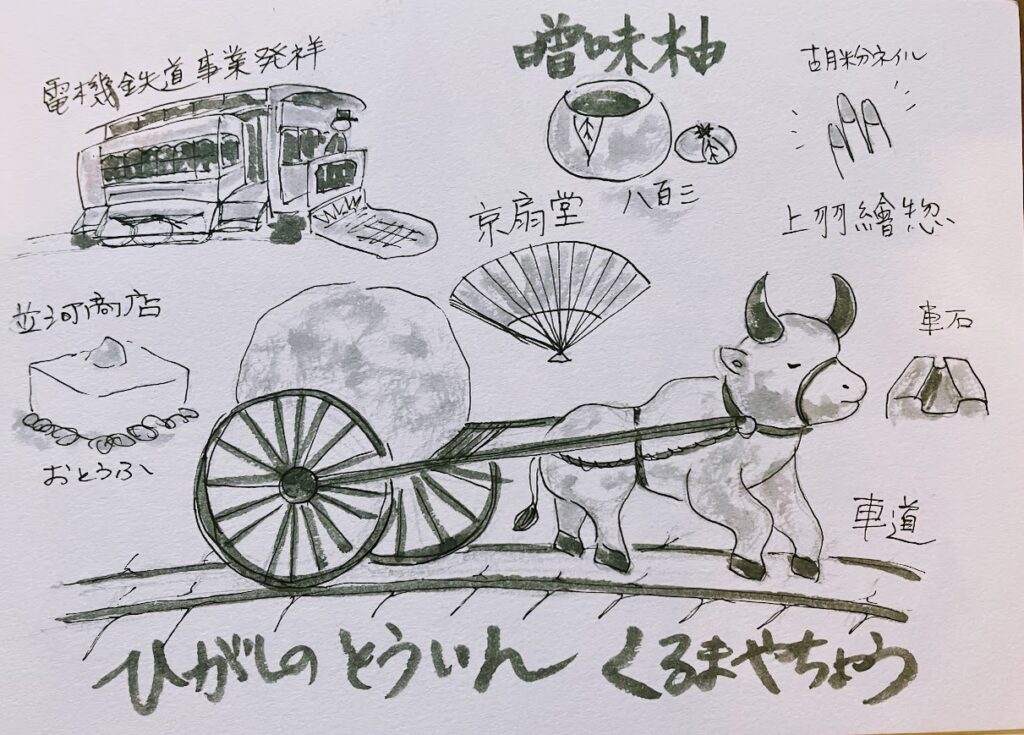 電機鉄道事業発祥
噌味柚
胡粉ネイル
八百三
京扇堂
上羽繪惣
並河商店
おとうふ
車石
車道
ひがしのとういん くるまやちょう